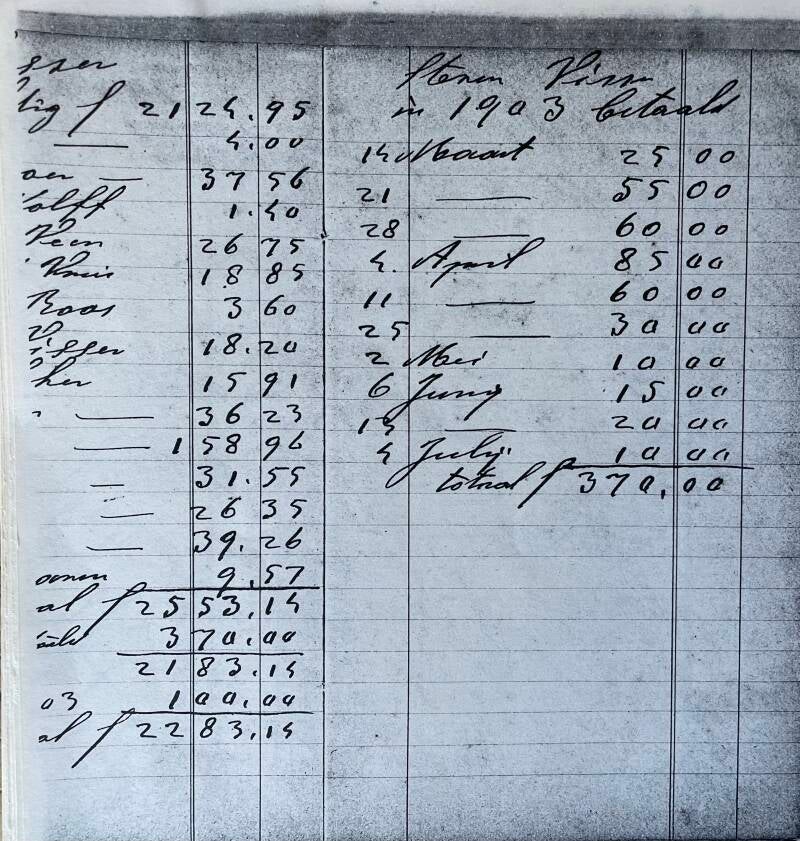 sser
tig f 2124.95
— 4.00
oer — 37 56
olff 1.40
Veen 26 75
18 85
Roos 3 60
V
isser 18.20
her 15 91
" — 36 23
— 158 96
— 31.55
— 26 35
— 39.26
9.57
al f 2553.14
370.00
2183.14
03 100.00
al f 2283.14
Visser
in 1903 betaald
14 Maart 25 00
21 — 55 00
28 — 60 00
4. April 85 00
11 — 60 00
25 — 30 00
2 Mei 10 00
6 Juny 15 00
13 — 20 00
4 July 10 00
totaal f 370.00